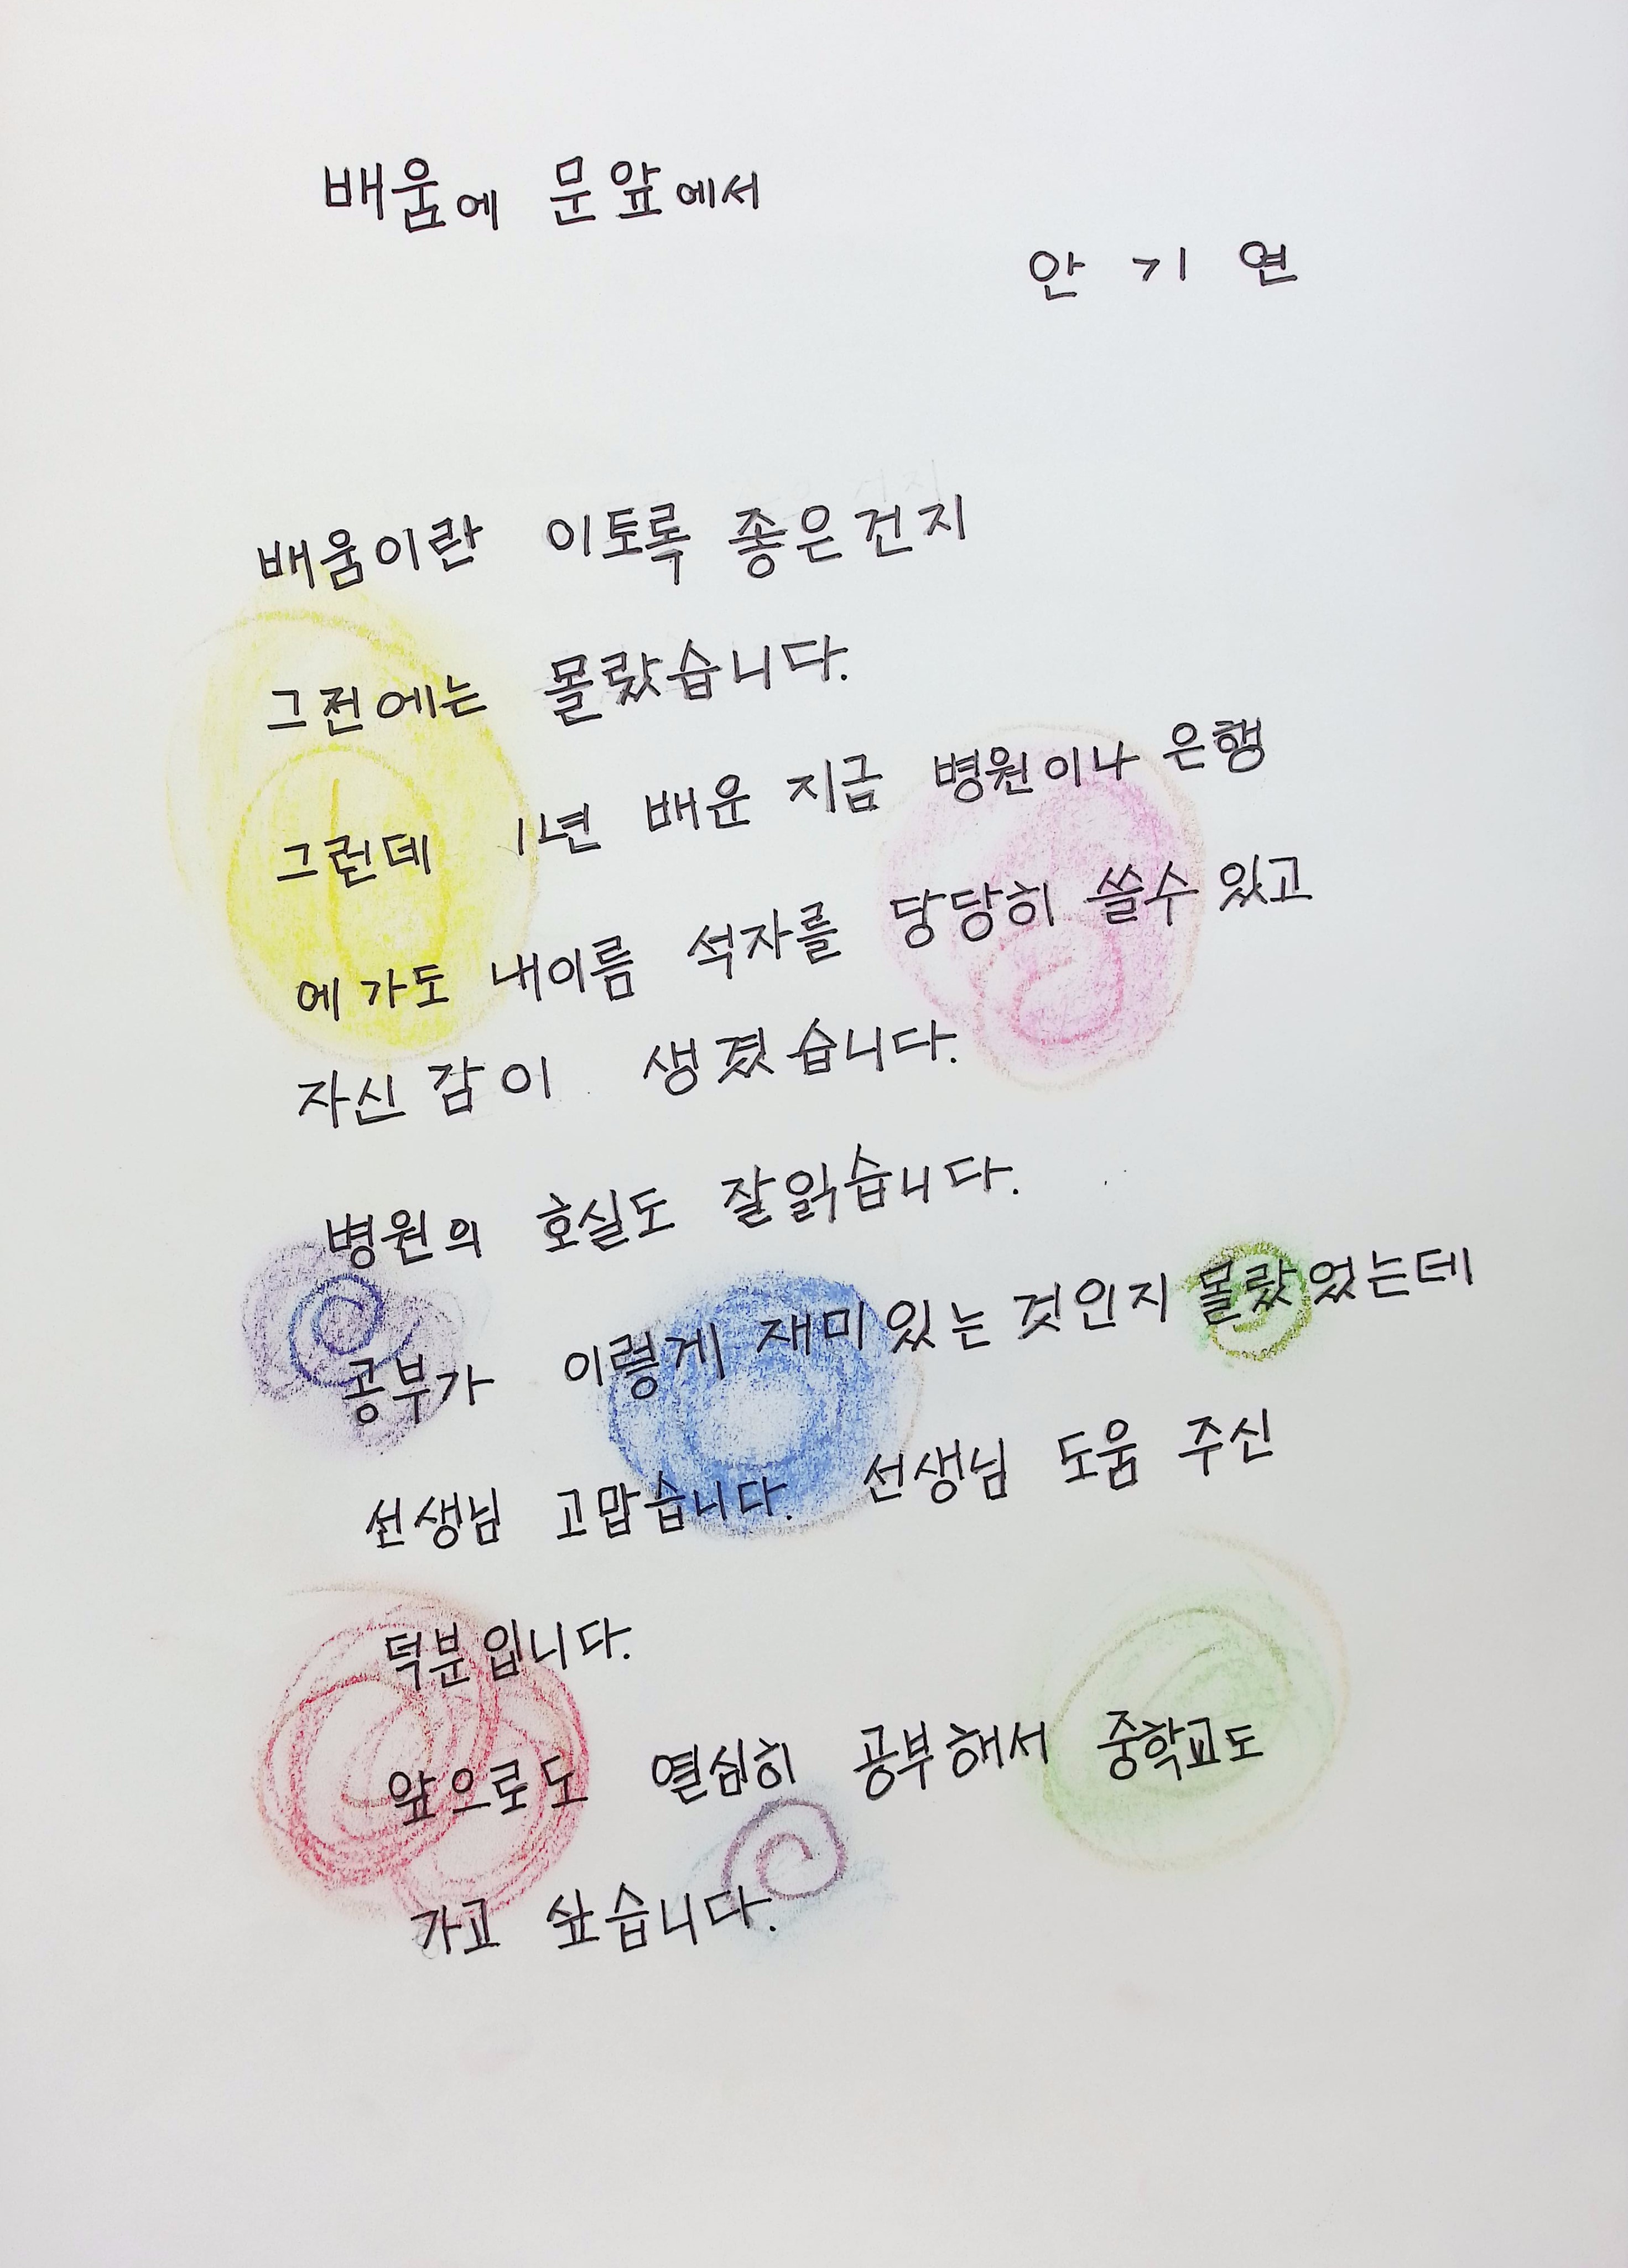 배움에 문앞에서
안 기 연
배움이란 이토록 좋은건지
그전에는 몰랐습니다.
그런데 1년 배운 지금 병원이나 은행
에 가도 내이름 석자를 당당히 쓸수 있고
자신감이 생겼습니다.
병원의 호실도 잘읽습니다.
공부가 이렇게 재미있는 것인지 몰랐었는데
선생님 고맙습니다. 선생님 도움 주신
덕분입니다.
앞으로도 열심히 공부해서 중학교도
가고 싶습니다.